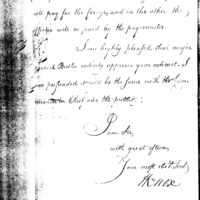 pay for the forage, and in the other the
officer will be paid by the paymaster.
I am highly pleased that major
Butler entirely approves your conduct. I
am persuaded it will be the same with the
in Chief and the public.
I am Sir,
with great esteem,
Your most obed. Serv.
H Knox